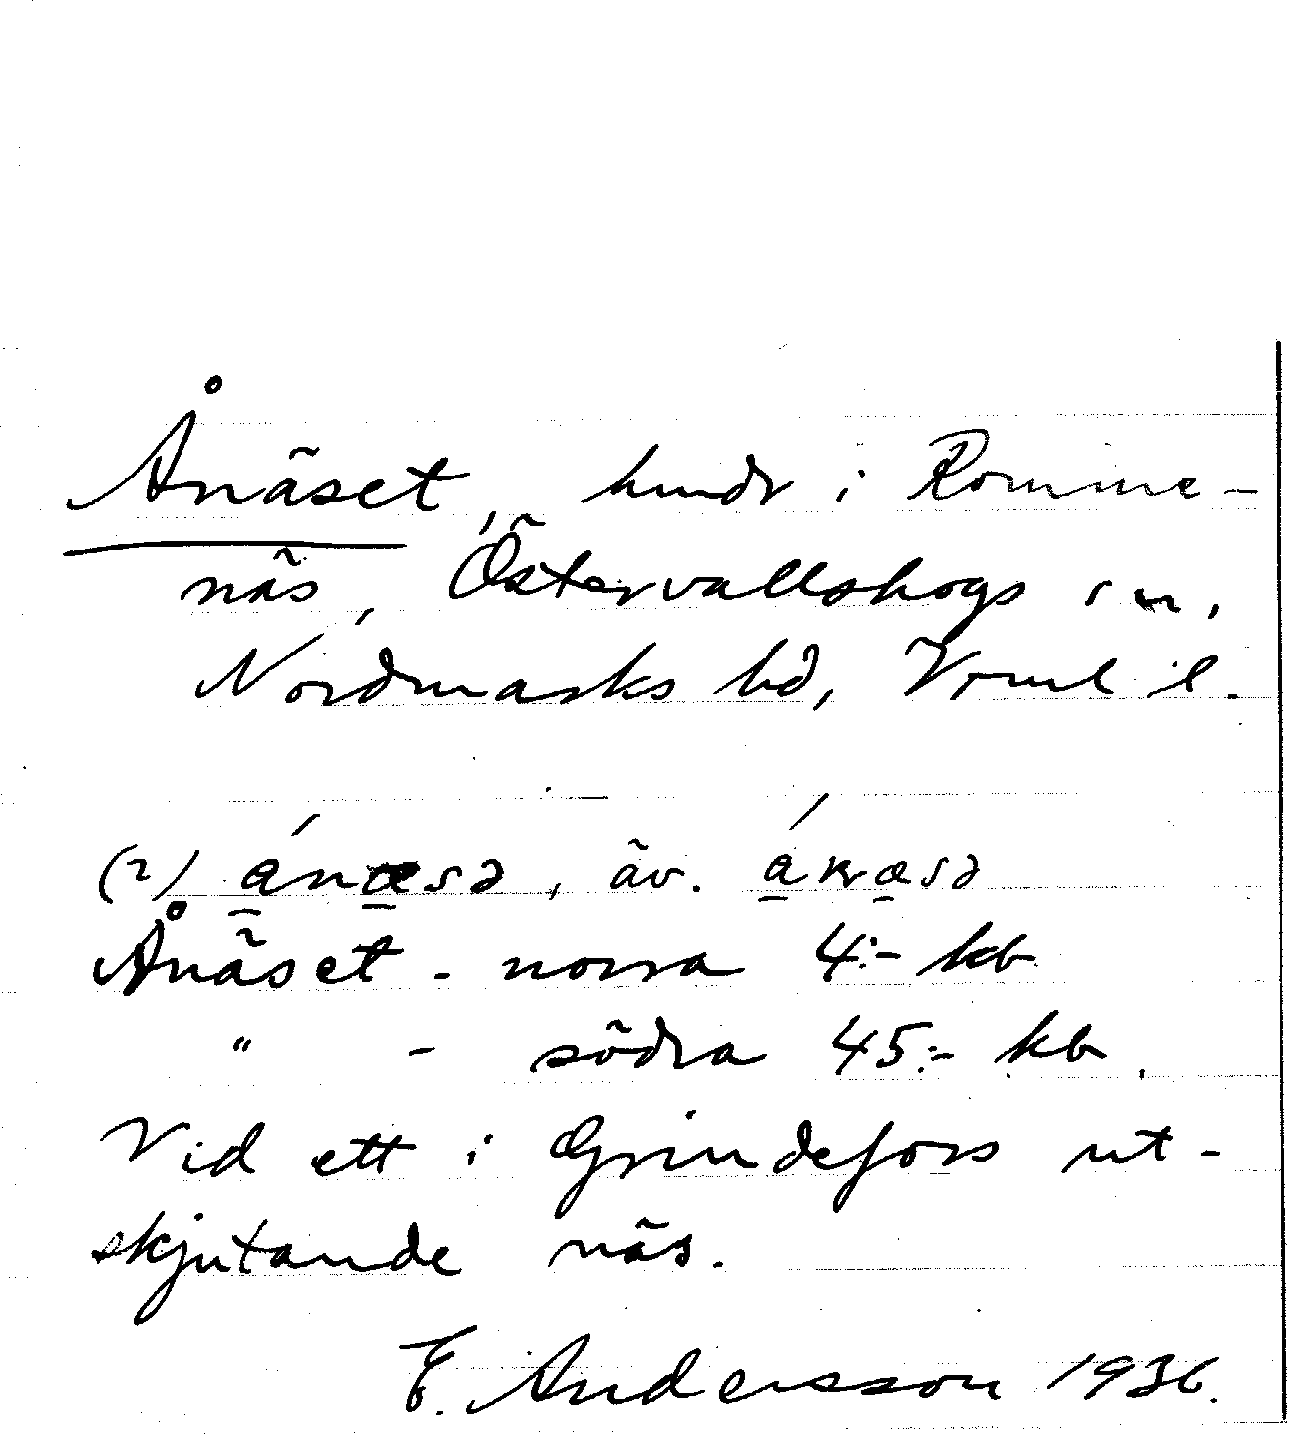 Ånäset, hmdr i Romme-
näs, Östervallskogs sn,
Nordmarks hd, Vrml. l.
(2) ánæsə, äv. ákræsə
Ånäset - norra 4:- kb
" - södra 45:- kb.
Vid ett i Grindefors ut-
skjutande näs.
E. Andersson 1936.